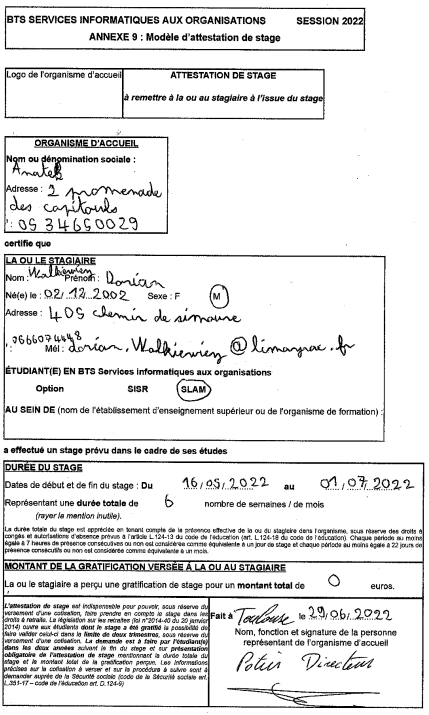 BTS SERVICES INFORMATIQUES AUX ORGANISATIONS SESSION 2022
ANNEXE 9 : Modèle d'attestation de stage
Logo de l'organisme d'accueil
ATTESTATION DE STAGE
à remettre à la ou au stagiaire à l'issue du stage
ORGANISME D'ACCUEIL
Nom ou dénomination sociale :
Adresse : 2 promenade
des capitouls
: 05 34650029
certifie que
LA OU LE STAGIAIRE
Nom : Walkiewiez Prénom : Dorian
Né(e) le : 02/12/2002 Sexe : F M
Adresse : 405 chemin de
: 0666074448
Mél : dorian.Walkiewiez@limayrac.fr
ÉTUDIANT(E) EN BTS Services informatiques aux organisations
Option SISR SLAM
AU SEIN DE (nom de l'établissement d'enseignement supérieur ou de l'organisme de formation) :
a effectué un stage prévu dans le cadre de ses études
DURÉE DU STAGE
Dates de début et de fin du stage : Du 16/05/2022 au 01/07/2022
Représentant une durée totale de 6 nombre de semaines / de mois
(rayer la mention inutile).
La durée totale du stage est appréciée en tenant compte de la présence effective de la ou du stagiaire dans l'organisme, sous réserve des droits à
congés et autorisations d'absence prévus à l'article L.124-13 du code de l'éducation (art. L.124-18 du code de l'éducation). Chaque période au moins
égale à 7 heures de présence consécutives ou non est considérée comme équivalente à un jour de stage et chaque période au moins égale à 22 jours de
présence consécutifs ou non est considérée comme équivalente à un mois.
MONTANT DE LA GRATIFICATION VERSÉE À LA OU AU STAGIAIRE
La ou le stagiaire a perçu une gratification de stage pour un montant total de 0 euros.
L'attestation de stage est indispensable pour pouvoir, sous réserve du
versement d'une cotisation, faire prendre en compte le stage dans les
droits à retraite. La législation sur les retraites (loi n°2014-40 du 20 janvier
2014) ouvre aux étudiants dont le stage a été gratifié la possibilité de
faire valider celui-ci dans la limite de deux trimestres, sous réserve du
versement d'une cotisation. La demande est à faire par l'étudiant(e)
dans les deux années suivant la fin du stage et sur présentation
obligatoire de l'attestation de stage mentionnant la durée totale du
stage et le montant total de la gratification perçue. Les informations
précises sur la cotisation à verser et sur la procédure à suivre sont à
demander auprès de la Sécurité sociale (code de la Sécurité sociale art.
L.351-17 – code de l'éducation art. D.124-9)
Fait à Toulouse le 29/06/2022
Nom, fonction et signature de la personne
représentant de l'organisme d'accueil
Potier Directeur